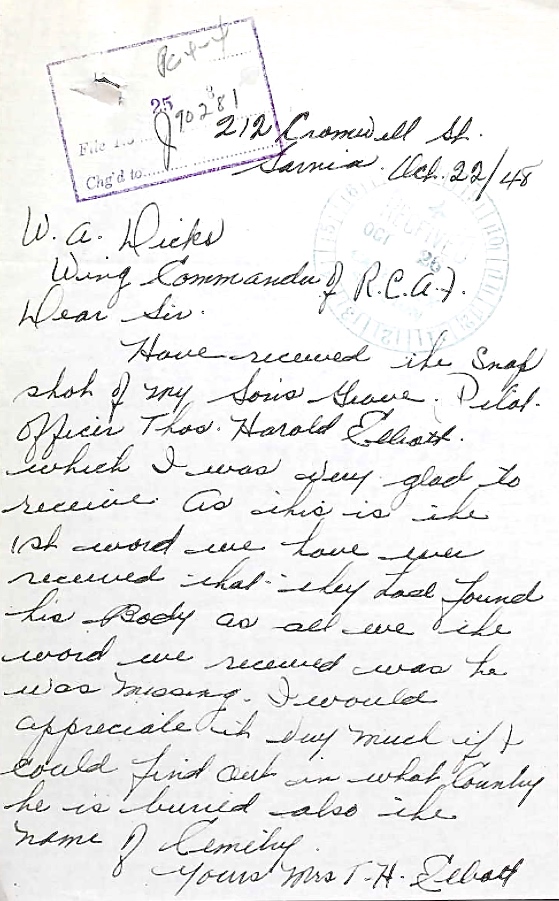 PC 4-4
25
File No. J 90281
Chg'd to
212 Cromwell St.
Sarnia. Oct. 22/48
RECEIVED
OCT 26
W. A. Dicks
Wing Commander of R.C.A.F.
Dear Sir.
Have received the Snap
shot of my Sons Grave. Pilot.
Officer Thos. Harold Elliott.
which I was very glad to
receive. As this is the
1st word we have ever
received that they had found
his Body as all we the
word we received was he
was missing. I would
appreciate it very much if I
could find out in what Country
he is buried also the
name of Cemetry.
Yours Mrs T. H. Elliott